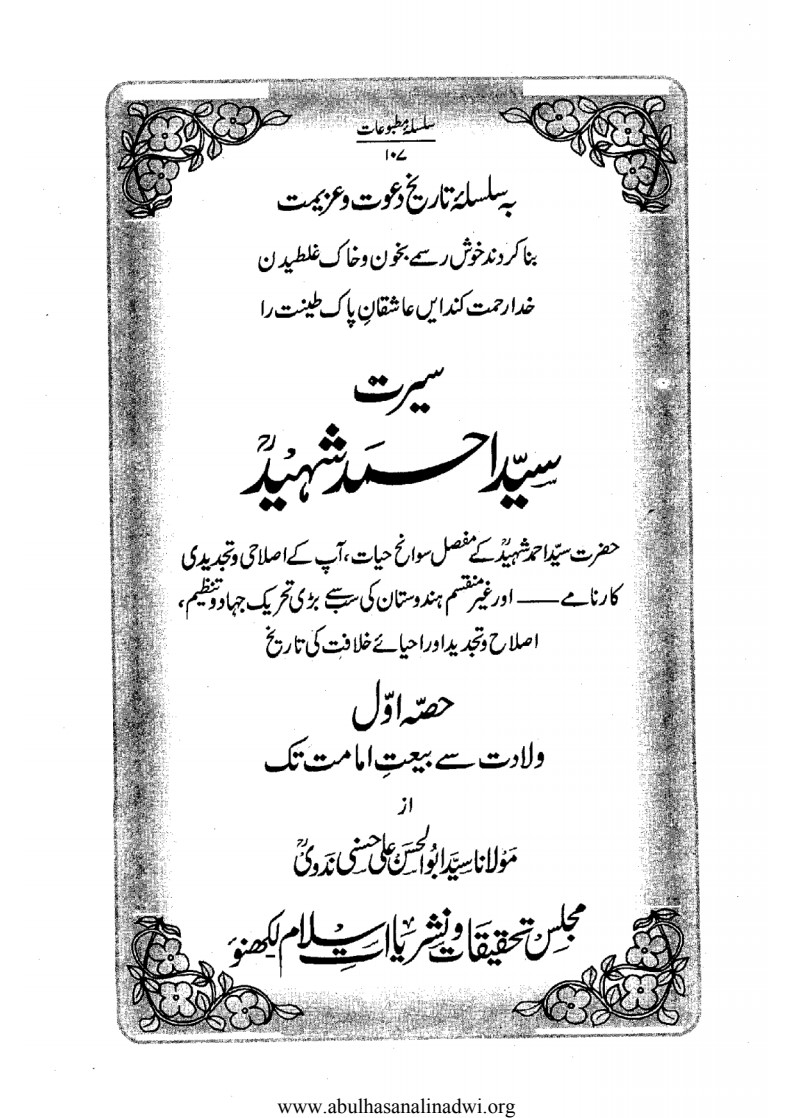 سلسلۂ مطبوعات
۱۰۷
بہ سلسلۂ تاریخ دعوت و عزیمت
بنا کردند خوش رسمے بخون و خاک غلطیدن
خدا رحمت کند ایں عاشقانِ پاک طینت را
سیرت
سیّد احمد شہیدؒ
حضرت سیّد احمد شہیدؒ کے مفصل سوانح حیات، آپ کے اصلاحی و تجدیدی
کارنامے —— اور غیر منقسم ہندوستان کی سب سے بڑی تحریک جہاد و تنظیم،
اصلاح و تجدید اور احیائے خلافت کی تاریخ
حصّہ اوّل
ولادت سے بیعتِ امامت تک
از
مولانا سیّد ابوالحسن علی حسنی ندویؒ
مجلس تحقیقات و نشریات اسلام لکھنؤ
www.abulhasanalinadwi.org